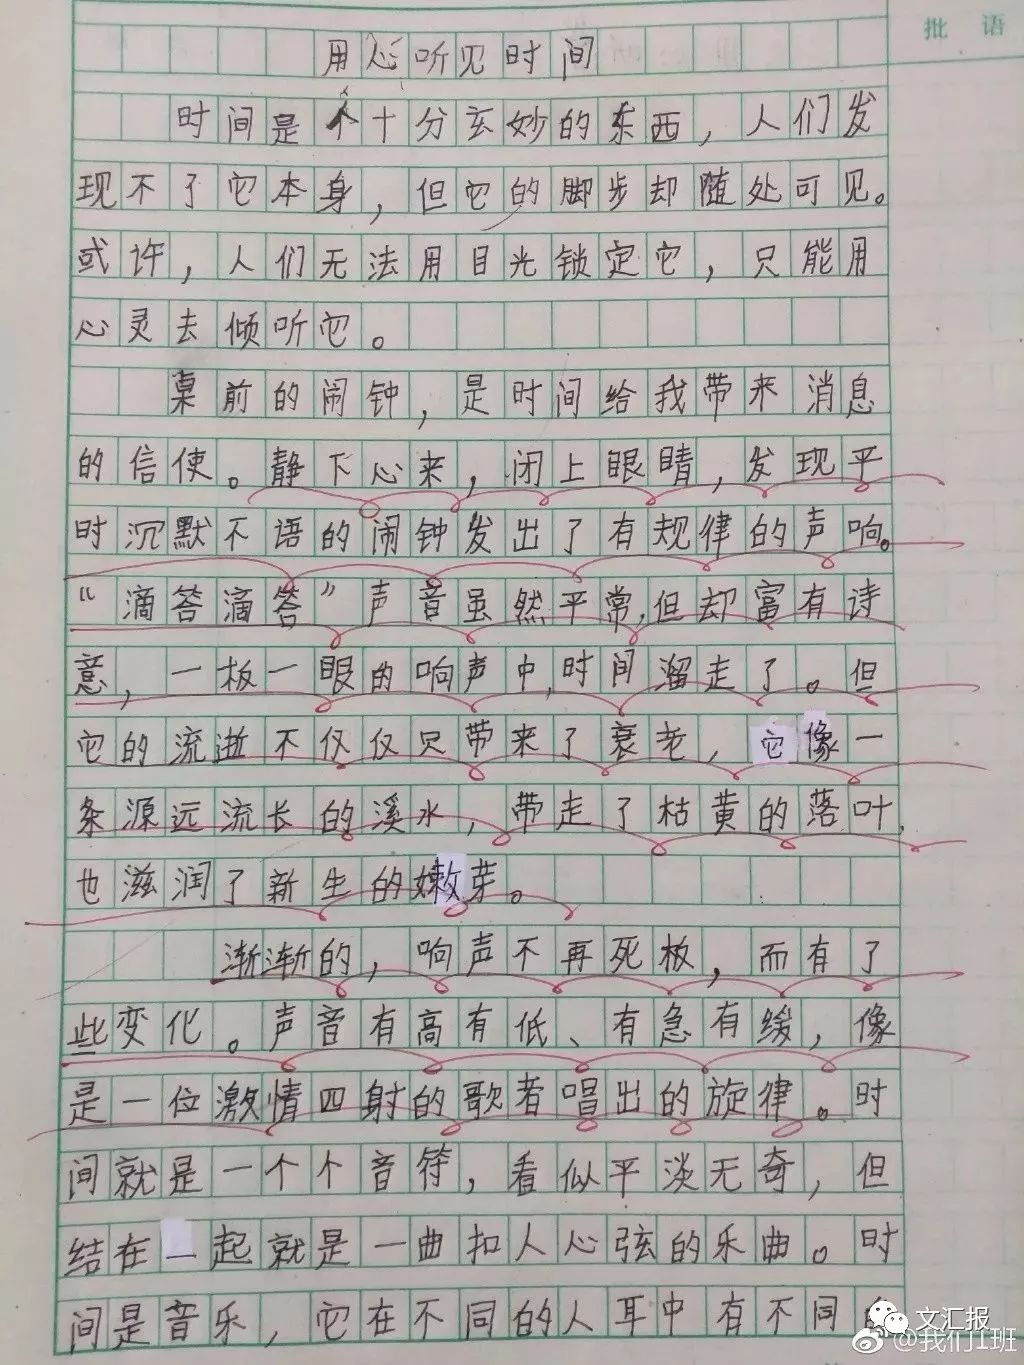 批语
用心听见时间
时间是个十分玄妙的东西，人们发
现不了它本身，但它的脚步却随处可见。
或许，人们无法用目光锁定它，只能用
心灵去倾听它。
桌前的闹钟，是时间给我带来消息
的信使。静下心来，闭上眼睛，发现平
时沉默不语的闹钟发出了有规律的声响。
“滴答滴答”声音虽然平常，但却富有诗
意，一板一眼的响声中，时间溜走了。但
它的流逝不仅仅只带来了衰老，它像一
条源远流长的溪水，带走了枯黄的落叶，
也滋润了新生的嫩芽。
渐渐的，响声不再死板，而有了
些变化。声音有高有低、有急有缓，像
是一位激情四射的歌者唱出的旋律。时
间就是一个个音符，看似平淡无奇，但
结在一起就是一曲扣人心弦的乐曲。时
间是音乐，它在不同的人耳中有不同
文汇报
@我们1班